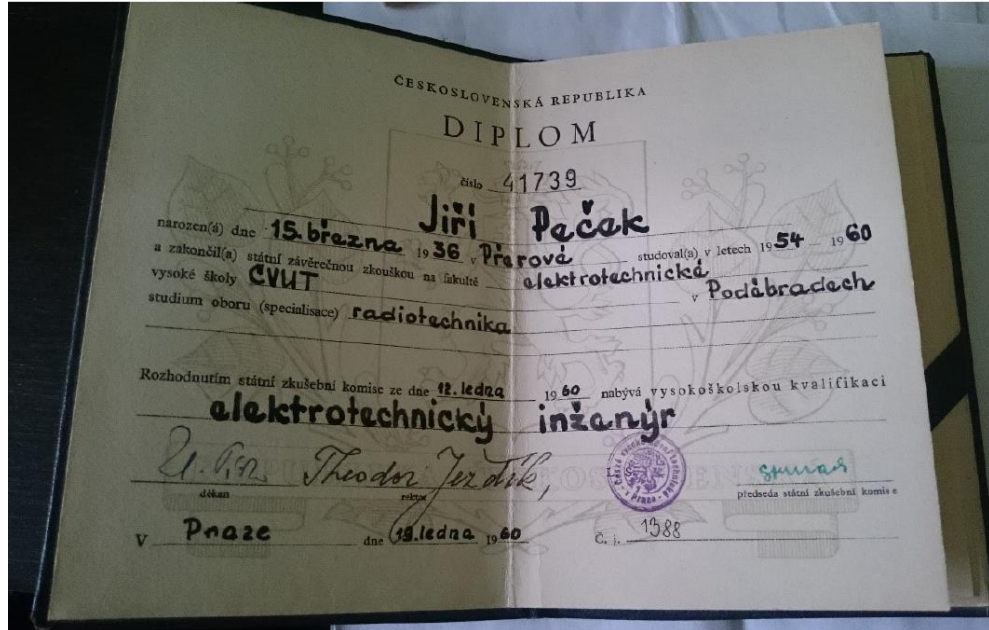 ČESKOSLOVENSKÁ REPUBLIKA
DIPLOM
číslo 41739
Jiří Pečak
narozen(á) dne 15. března 1936 v Přerově studoval(a) v letech 1954 – 1960
a zakončil(a) státní závěrečnou zkouškou na fakultě elektrotechnické
vysoké školy ČVUT v Poděbradech
studium oboru (specialisace) radiotechnika
Rozhodnutím státní zkušební komise ze dne 12. ledna 1960 nabývá vysokoškolskou kvalifikaci
elektrotechnický inženýr
Theodor Jezdík,
děkan rektor předseda státní zkušební komise
V Praze dne 19. ledna 1960 Č. j. 1388